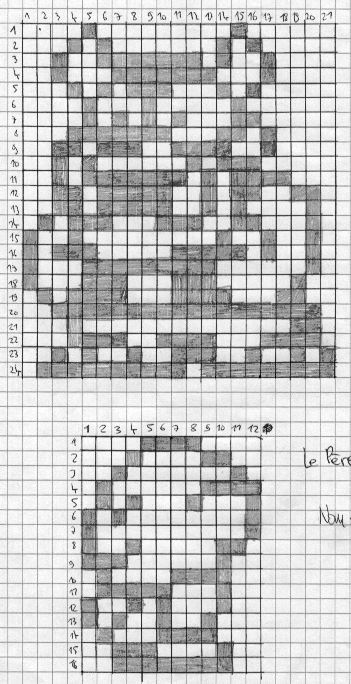 1 2 3 4 5 6 7 8 9 10 11 12 13 14 15 16 17 18 19 20 21
1
2
3
4
5
6
7
8
9
10
11
12
13
14
15
16
17
18
19
20
21
22
23
24
1 2 3 4 5 6 7 8 9 10 11 12
1
2
3
4
5
6
7
8
9
10
11
12
13
14
15
16
Le Père
Nom